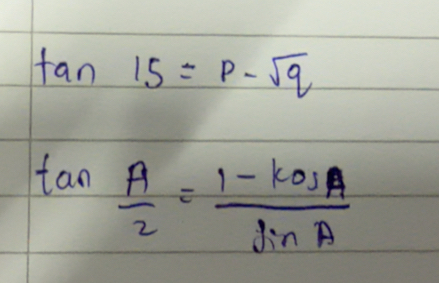 tan 15 = p - √q
tan A/2 = 1 - kosA / sin A